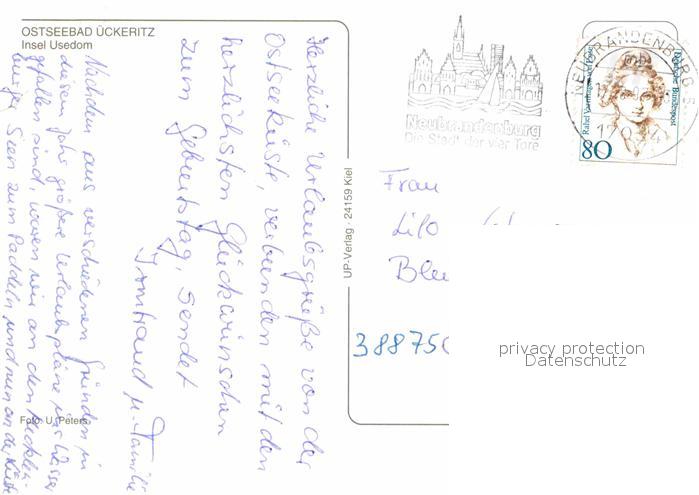 OSTSEEBAD ÜCKERITZ
Insel Usedom
Herzliche Urlaubsgrüße von der
Ostseeküste, verbunden mit den
herzlichsten Glückwünschen
zum Geburtstag, sendet
Irmtraud u. Familie
Nachdem aus verschiedenen Gründen in
diesem Jahr größere Urlaubspläne ins Wasser
gefallen sind, waren wir an den Mecklen-
burger Seen zum Paddeln und nun an der Küste
Foto: U. Peters
UP-Verlag · 24159 Kiel
Neubrandenburg
Die Stadt der vier Tore
NEUBRANDENBURG
mb
Rahel Varnhagen von Ense
Deutsche Bundespost
80
Frau
Lilo
388750
privacy protection
Datenschutz